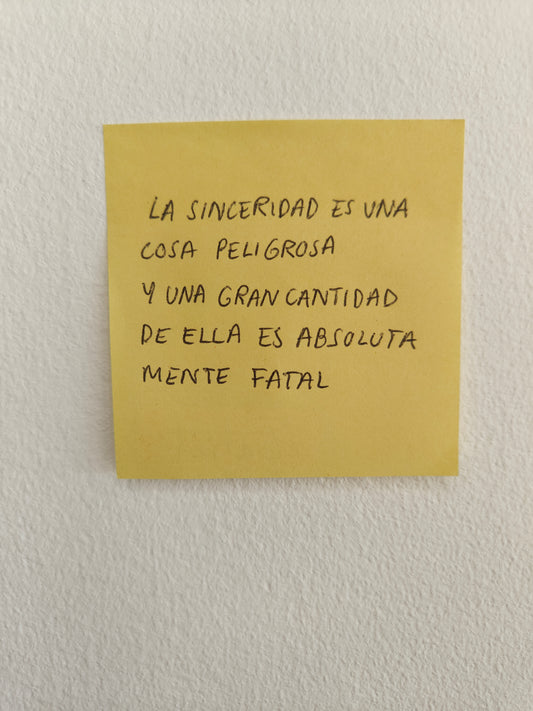 LA SINCERIDAD ES UNA
COSA PELIGROSA
Y UNA GRAN CANTIDAD
DE ELLA ES ABSOLUTA
MENTE FATAL